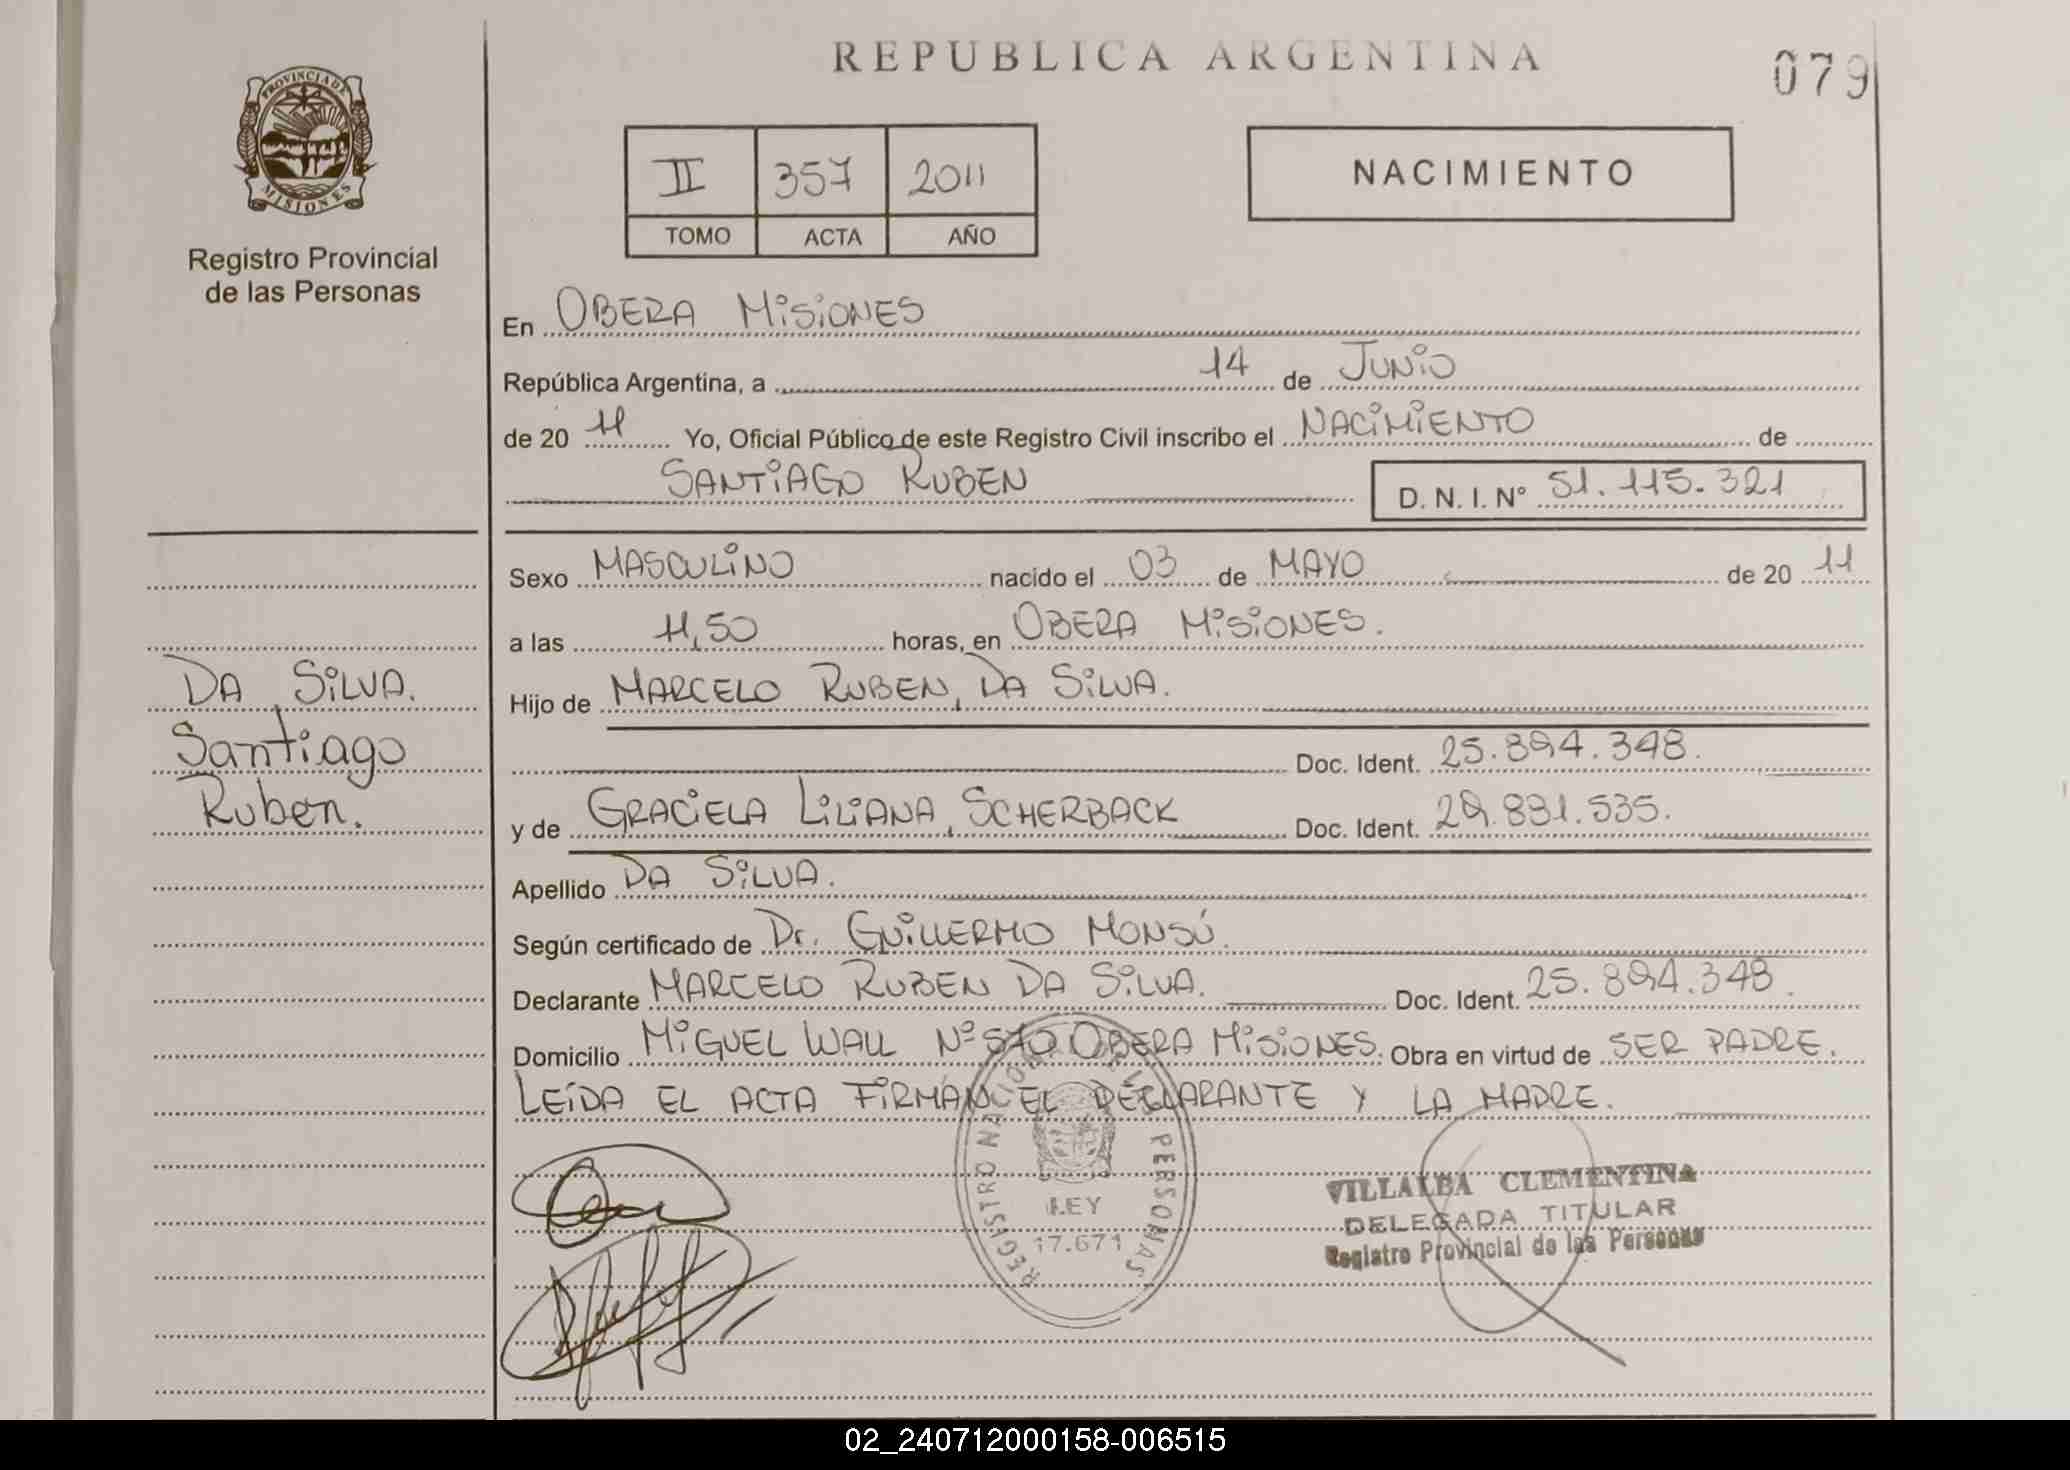 REPUBLICA ARGENTINA
079
PROVINCIA DE
MISIONES
Registro Provincial
de las Personas
II 357 2011
TOMO ACTA AÑO
NACIMIENTO
En OBERA MISIONES
República Argentina, a 14 de JUNIO
de 20 11 Yo, Oficial Público de este Registro Civil inscribo el NACIMIENTO de
SANTIAGO RUBEN D. N. I. N° 51.115.321
Sexo MASCULINO nacido el 03 de MAYO de 20 11
a las 11,50 horas, en OBERA MISIONES.
Hijo de MARCELO RUBEN, DA SILVA.
Doc. Ident. 25.894.348.
y de GRACIELA LILIANA, SCHERBACK Doc. Ident. 29.831.535.
DA SILVA.
Santiago
Ruben.
Apellido DA SILVA.
Según certificado de Dr. GUILLERMO MONSÚ.
Declarante MARCELO RUBEN DA SILVA. Doc. Ident. 25.894.348.
Domicilio MIGUEL WALL N° 570 OBERA MISIONES. Obra en virtud de SER PADRE.
LEÍDA EL ACTA FIRMAN EL DECLARANTE Y LA MADRE.
REGISTRO NACIONAL DE LAS PERSONAS
LEY
17.671
VILLALBA CLEMENTINA
DELEGADA TITULAR
Registro Provincial de las Personas
02_240712000158-006515